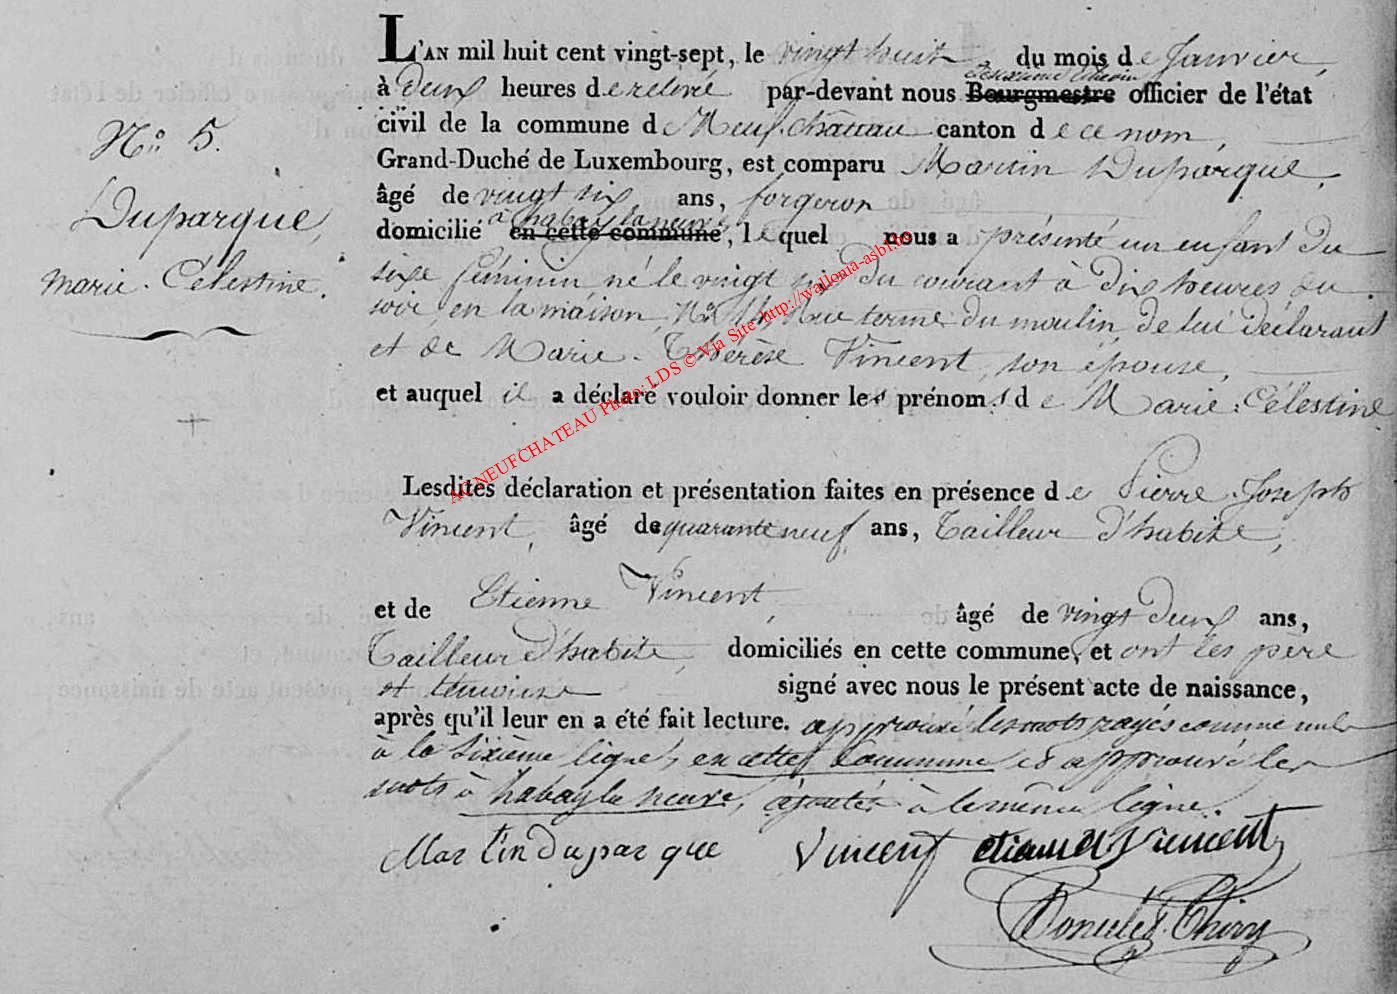 L'AN mil huit cent vingt-sept, le vingt huit, du mois de Janvier,
à deux heures de relevé par-devant nous Bourgmestre officier de l'état
civil de la commune de Neufchâteau canton de ce nom,
N° 5.
Grand-Duché de Luxembourg, est comparu Martin Duparque,
âgé de vingt six ans, forgeron
Duparque,
à habay la neuve
domicilié en cette commune, lequel nous a présenté un enfant du
Marie-Célestine.
sixe féminin, né le vingt du courant à dix heures du
soir, en la maison, N° 14, Rue terme du moulin, de lui déclarant
et de Marie-Thérèse Vincent, son épouse,
et auquel il a déclaré vouloir donner les prénoms de Marie-Célestine
AC NEUFCHATEAU Photo: LDS © Via Site http://wallonia-asbl.be
Lesdites déclaration et présentation faites en présence de Pierre-Joseph
Vincent, âgé de quarante neuf ans, Tailleur d'habits,
et de Etienne Vincent, âgé de vingt deux ans,
Tailleur d'habits, domiciliés en cette commune, et ont les père
et témoins signé avec nous le présent acte de naissance,
après qu'il leur en a été fait lecture. approuvé les mots rayés comme nuls
à la sixième ligne, en cette Commune et approuvé les
mots à habay la neuve, ajoutés à la même ligne.
Martin duparque Vincent etienne Vincent
Thiry